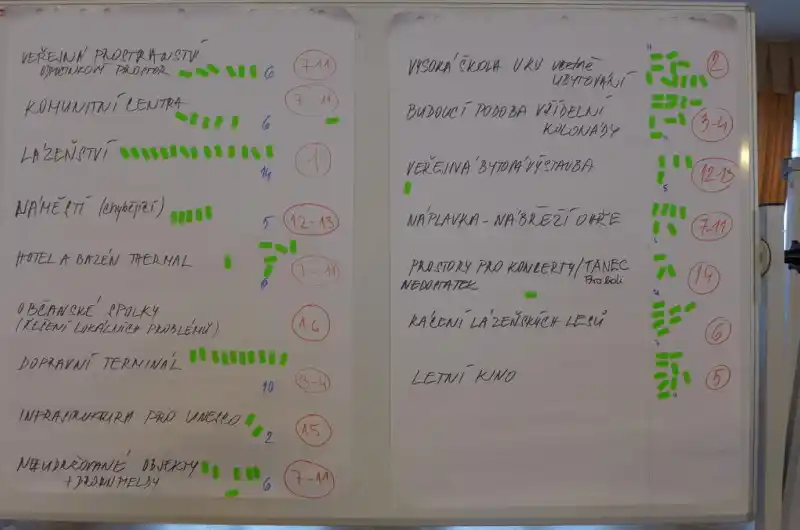 VEŘEJNÁ PROSTRANSTVÍ
6 7-11
KOMUNITNÍ CENTRA
6 7-11
LÁZEŇSTVÍ
14 1
NÁMĚSTÍ (chybějící)
5 12-13
HOTEL A BAZÉN THERMAL
6 7-11
OBČANSKÉ SPOLKY
(ŘEŠENÍ LOKÁLNÍCH PROBLÉMŮ) 16
DOPRAVNÍ TERMINÁL
10 3-4
INFRASTRUKTURA PRO UNESCO
2 15
NEUDRŽOVANÉ OBJEKTY
6 7-11
VYSOKÁ ŠKOLA V KV včetně
UBYTOVÁNÍ 2
BUDOUCÍ PODOBA VŘÍDELNÍ
KOLONÁDY 3-4
VEŘEJNÁ BYTOVÁ VÝSTAVBA
5 12-13
NÁPLAVKA - NÁBŘEŽÍ OHŘE 7-11
PROSTORY PRO KONCERTY/TANEC
NEDOSTATEK 14
KÁCENÍ LÁZEŇSKÝCH LESŮ 6
LETNÍ KINO 5